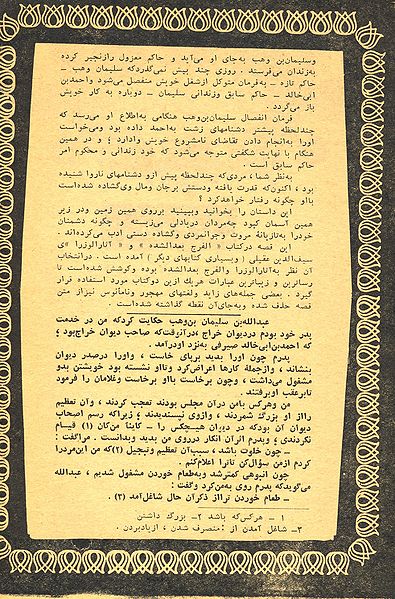 وسلیمان‌بن وهب به‌جای او می‌آید و حاکم معزول رازنجیر کرده
به‌زندان می‌فرستد . روزی چند پیش نمی‌گذردکه سلیمان وهب –
حاکم تازه – به‌فرمان متوکل ازشغل خویش منفصل می‌شود واحمدبن
ابی‌خالد – حاکم سابق وزندانی سلیمان – دوباره به کار خویش
باز می‌گردد .
فرمان انفصال سلیمان‌بن‌وهب هنگامی به‌اطلاع او می‌رسد که
چندلحظه پیشتر دشنامهای زشت به‌احمد داده بود ومی‌خواست
اورا به‌انجام دادن تقاضای نامشروع خویش وادارد ؛ و در همین
هنگام با نهایت شگفتی متوجه می‌شود که خود زندانی و محکوم امر
حاکم سابق است .
به‌نظر شما ، مردی‌که چندلحظه پیش ازو دشنامهای ناروا شنیده
بود ، اکنون‌که قدرت یافته ودستش برجان ومال وی‌گشاده شده‌است
بااو چگونه رفتار خواهدکرد ؟
این داستان را بخوانید وببینید برروی همین زمین ودر زیر
همین آسمان کبود چه‌مردان دریادلی می‌زیسته و چگونه دشمنان
خودرا به‌تازیانهٔ مروت وجوانمردی وگشاده دستی ادب می‌کرده‌اند .
این قصه درکتاب « الفرج بعدالشده » و « آثارالوزرا »ی
سیف‌الدین عقیلی ( وبسیاری کتابهای دیگر ) آمده است . درانتخاب
آن نظر به‌آثارالوزرا والفرج بعدالشده بوده وکوشش شده‌است تا
رساترین و زیباترین عبارات هریك ازین دوکتاب مورد استفاده قرار
گیرد . بعضی جمله‌های زاید ولغتهای مهجور ونامأنوس نیزاز متن
قصه حذف شده وبه‌جای‌آن نقطه گذاشته شده‌است .
عبدالله‌بن سلیمان بن‌وهب حکایت کردکه من در خدمت
پدر خود بودم دردیوان خراج ؛ درآن‌وقت‌که صاحب دیوان خراج‌بود ؛
که احمدبن‌ابی‌خالد صیرفی به‌نزد اودرآمد .
پدرم چون اورا بدید برپای خاست ، واورا درصدر دیوان
بنشاند ، وازجملهٔ کارها اعراض‌کرد وتااو نشسته بود خویشتن بدو
مشغول می‌داشت ، وچون برخاست بااو برخاست وغلامان را فرمود
تابرعقب اوبرفتند .
من وهرکس بامن درآن مجلس بودند تعجب کردند ، وآن تعظیم
رااز او بزرگ شمردند ، وازوی نپسندیدند ؛ زیراکه رسم اصحاب
دیوان آن بودکه در دیوان هیچکس را – کایناً من‌کان (۱) قیام
نکردندی ؛ وپدرم اثرآن انکار درروی من بدید وبدانست . مراگفت :
– چون خلوت باشد ، سبب‌آن تعظیم وتبجیل (۲) که من این‌مردرا
کردم ازمن سؤال‌کن تاترا اعلام‌کنم .
چون انبوهی کمترشد وبه‌طعام خوردن مشغول شدیم ، عبدالله
می‌گویدکه پدرم روی به‌من‌کرد وگفت :
– طعام خوردن ترااز ذکرآن حال شاغل‌آمد (۳) .
۱ – هرکس‌که باشد ۲– بزرگ داشتن
۳– شاغل آمدن از : منصرف شدن ، ازیادبردن .